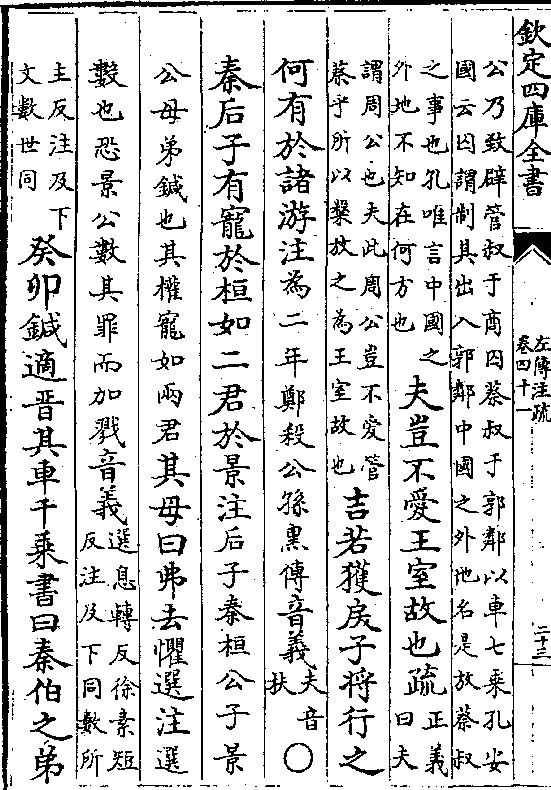 欽定四庫全書
左傳注疏
卷四十一
二十三
公乃致辟管叔于商囚蔡叔于郭鄰以車七乘孔安
國云囚謂制其出入郭鄰中國之外地名是放蔡叔
之事也孔唯言中國之
外地不知在何方也
夫豈不愛王室故也疏
正義
曰夫
謂周公也夫此周公豈不愛管
蔡乎所以槃放之為王室故也
吉若獲戾子將行之
何有於諸游注為二年鄭殺公孫黑傳音義
夫音
扶
〇
秦后子有寵於桓如二君於景注后子秦桓公子景
公母弟鍼也其權寵如兩君其母曰弗去懼選注選
數也恐景公數其罪而加戮音義
選息轉反徐素短
反注及下同數所
主反注及下
文數世同
癸卯鍼適晉其車千乘書曰秦伯之弟